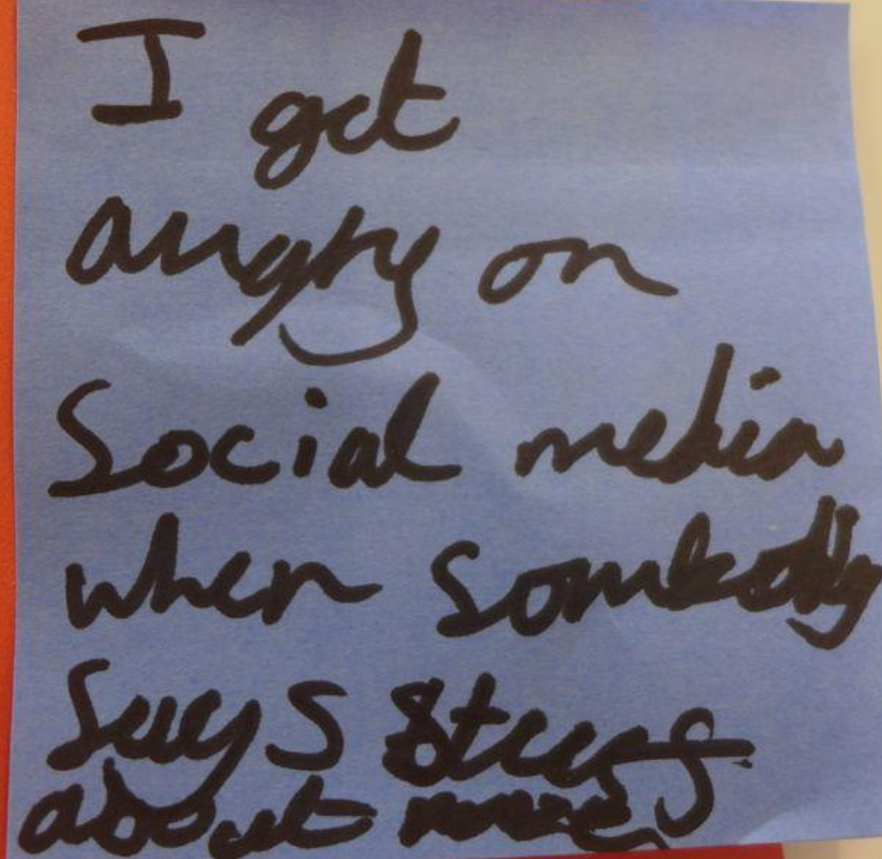 I get
angry on
Social media
when sombody
says stuff
about me